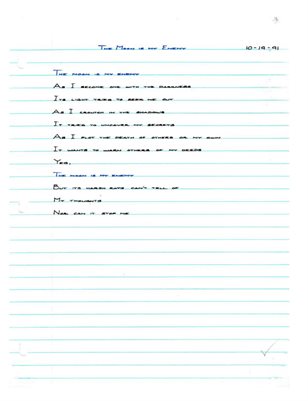 The Moon is my Enemy 10-19-91
The moon is my enemy
As I become one with the darkness
Its light tries to seek me out
As I crouch in the shadows
It tries to uncover my secrets
As I plot the death of others or my own
It wants to warn others of my deeds
Yes,
The moon is my enemy
But its harsh rays can't tell of
My thoughts
Nor can it stop me